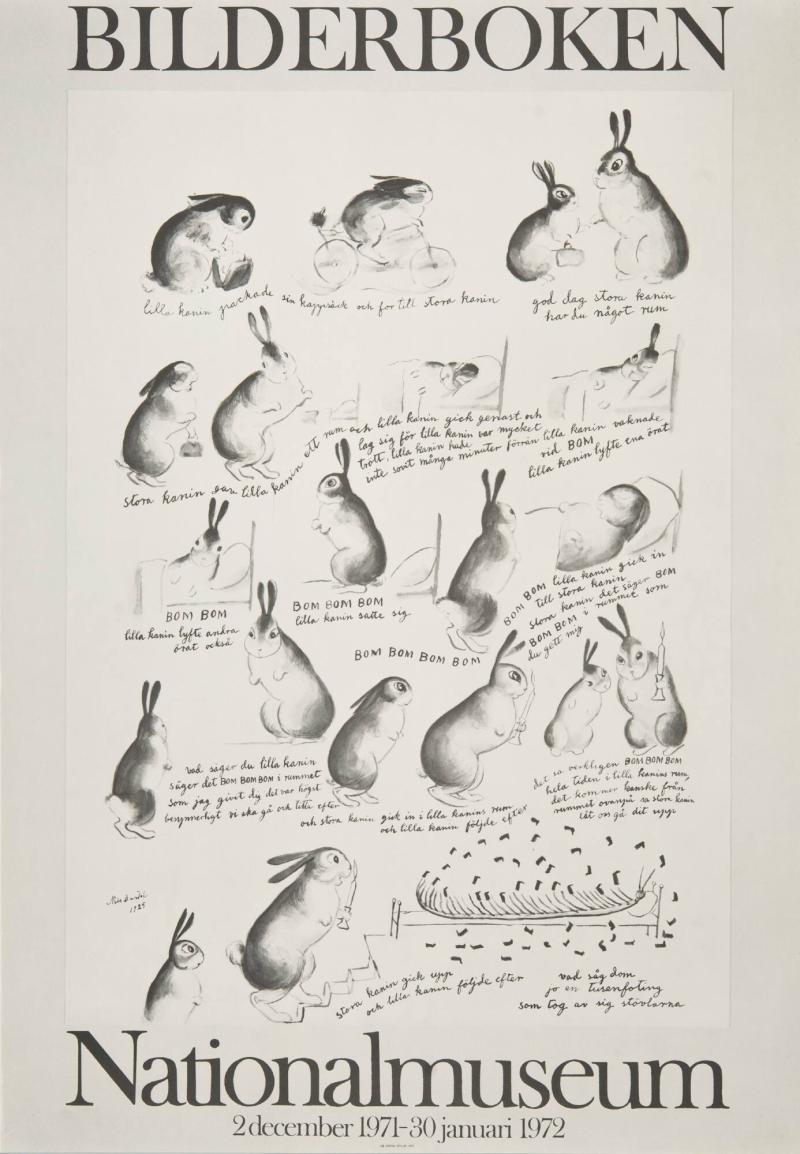 BILDERBOKEN
lilla kanin packade sin kappsäck och for till stora kanin
god dag stora kanin
har du något rum
stora kanin gav lilla kanin ett rum och lilla kanin gick genast och
lag sig för lilla kanin var mycket
trött, lilla kanin hade
inte sovit många minuter förrän lilla kanin vaknade
vid BOM
lilla kanin lyfte ena örat
BOM BOM
lilla kanin lyfte andra
örat också
BOM BOM BOM
lilla kanin satte sig
BOM BOM BOM BOM
BOM BOM lilla kanin gick in
till stora kanin
stora kanin det säger BOM
BOM BOM i rummet som
du gett mig
vad säger du lilla kanin
säger det BOM BOM BOM i rummet
som jag givit dig det var högst
besynnerligt vi ska gå och titta efter
och stora kanin gick in i lilla kanins rum
och lilla kanin följde efter
det sa verkligen BOM BOM BOM
hela tiden i lilla kanins rum,
det kommer kanske från
rummet ovanpå sa stora kanin
låt oss gå dit upp
1925
stora kanin gick upp
och lilla kanin följde efter
vad såg dom
jo en tusenfoting
som tog av sig stövlarna
Nationalmuseum
2 december 1971-30 januari 1972